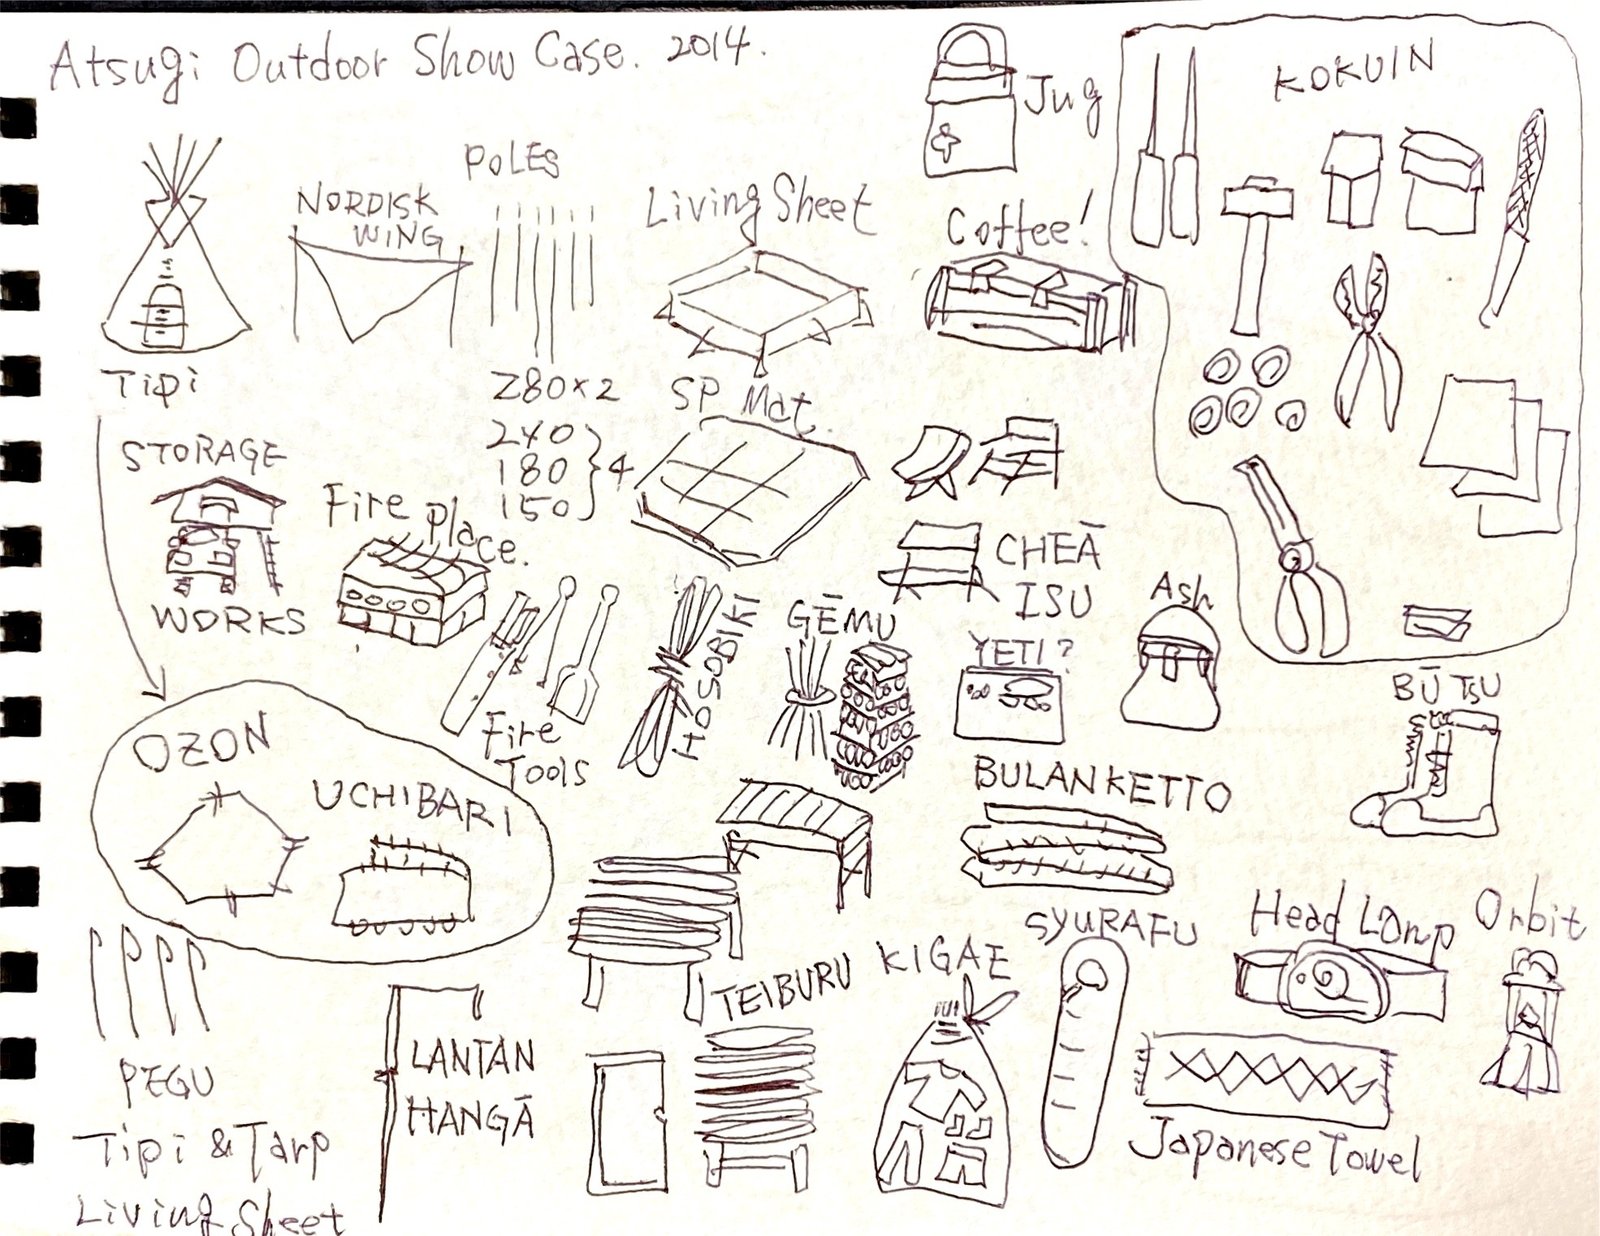 Atsugi Outdoor Show Case. 2014.
Jug
KOKUIN
POLES
NORDISK
WING
Living Sheet
Coffee!
Tipi
280×2
240
180
150
} 4
SP Mat
STORAGE
WORKS
Fire Place.
CHEĀ
ISU
Ash
HOSOBIKI
GĒMU
YETI?
BŪTSU
Fire
Tools
OZON
UCHIBARI
BULANKETTO
TEIBURU
KIGAE
SYURAFU
Head Lamp
Orbit
PEGU
Tipi & Tarp
Living Sheet
LANTAN
HANGĀ
Japanese Towel